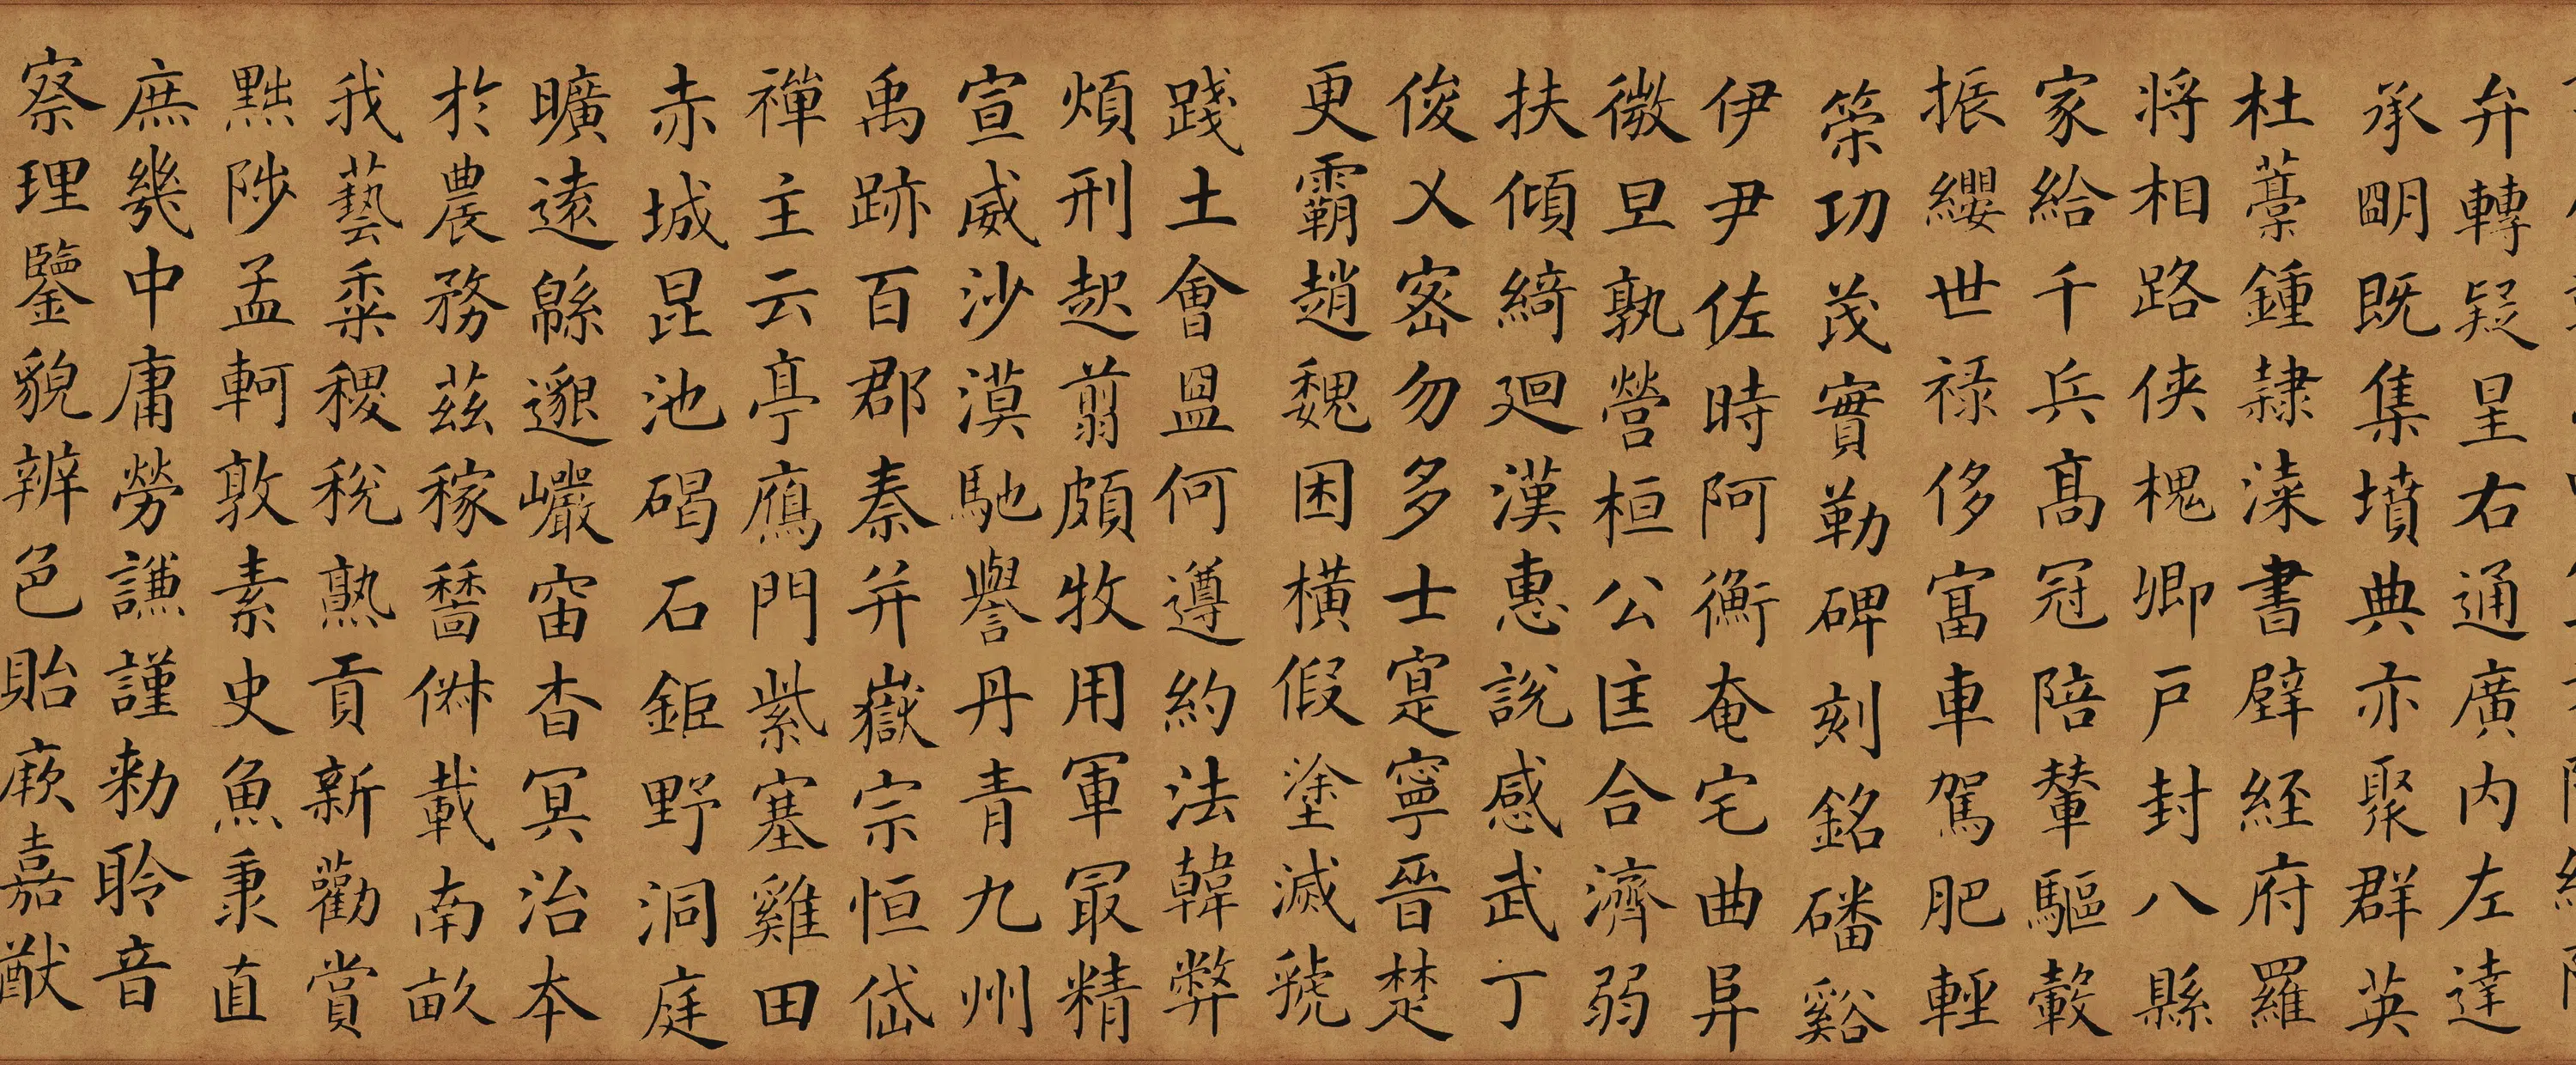 弁轉疑星右通廣内左達
承朙既集墳典亦聚群英
杜藁鍾隷漆書壁経府羅
将相路侠槐卿戸封八縣
家給千兵髙冠陪輦驅轂
振纓世禄侈富車駕肥軽
策功茂實勒碑刻銘磻谿
伊尹佐時阿衡奄宅曲阜
微旦孰營桓公匡合濟弱
扶傾綺廻漢惠說感武丁
俊乂密勿多士寔寧晉楚
更霸趙魏困橫假塗滅虢
踐土會盟何遵約法韓弊
煩刑起翦頗牧用軍最精
宣威沙漠馳譽丹青九州
禹跡百郡秦并嶽宗恒岱
禪主云亭鴈門紫塞雞田
赤城昆池碣石鉅野洞庭
曠遠緜邈巖岫杳冥治本
於農務茲稼穡俶載南畝
我藝黍稷稅熟貢新勸賞
黜陟孟軻敦素史魚秉直
庶幾中庸勞謙謹勑聆音
察理鑒貌辨色貽厥嘉猷